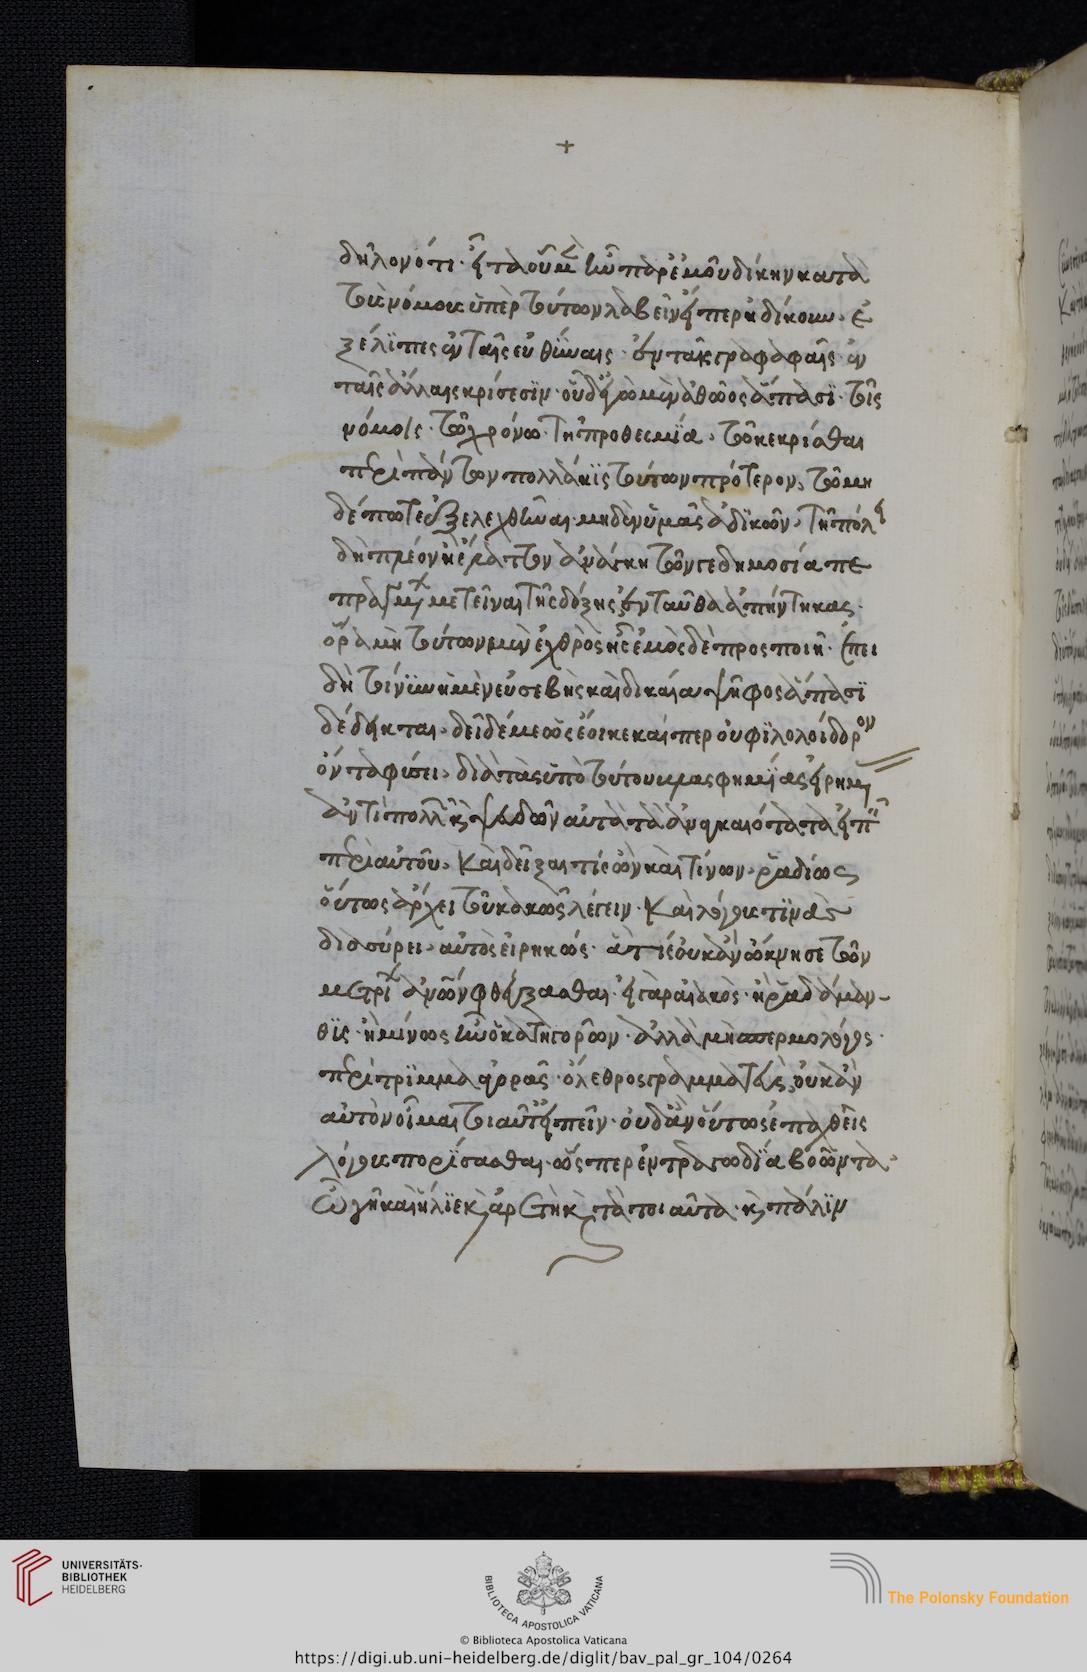 +
δηλονότι. εἶτα οὗ μὲν ἦν παρ' ἐμοῦ δίκην κατὰ
τοὺς νόμους ὑπὲρ τούτων λαβεῖν εἴπερ ἠδίκουν, ἐ
ξέλιπες ἐν ταῖς εὐθύναις. ἐν ταῖς γραφαφαῖς. ἐν
ταῖς ἄλλαις κρίσεσιν. οὗ δ' ἐγὼ μὲν ἀθῷος ἅπασι. τοῖς
νόμοις. τῷ χρόνῳ. τῇ προθεσμίᾳ, τῷ κεκρίσθαι
περὶ πάντων πολλάκις τούτων πρότερον, τῷ μη
δέπωτε ἐξελεχθῆναι μηδὲν ὑμᾶς ἀδικῶν, τῇ πόλει
δὴ πλέον ἢ ἔλαττον ἀνάγκη τῶν γε δημοσίᾳ πε
πραγμ μετεῖναι τῆς δόξης, ἐνταῦθα ἀπήντηκας.
ὅρα μὴ τούτων μὲν ἐχθρὸς ᾖς ἐμὸς δὲ προσποιῇ. ἐπει
δὴ τοίνυν ἡ μὲν εὐσεβὴς καὶ δικαία ψῆφος ἅπασι
δέδεικται, δεῖ δέ με ὡς ἔοικε καίπερ οὐ φιλολοίδορον
ὄντα φύσει, διὰ τὰς ὑπὸ τούτου βλασφημίας εἰρημ
ἀντὶ πολλῶν καὶ ψευδῶν αὐτὰ τὰ ἀναγκαιότατα εἰπεῖν
περὶ αὐτοῦ, καὶ δεῖξαι τίς ὢν καὶ τίνων, ῥᾳδίως
οὕτως ἄρχει τοῦ κακῶς λέγειν. καὶ λόγους τινὰς
διασύρει, αὐτὸς εἰρηκὼς. ἃ τίς οὐκ ἂν ὤκνησε τῶν
μετρι ἀνων φθέγξασθαι. εἰ γὰρ αἰακὸς. ἢ ῥαδάμαν-
θις. ἢ μίνως ἦν ὁ κατηγορῶν. ἀλλὰ μὴ σπερμολόγος.
περίτριμμα ἀγορᾶς. ὄλεθρος γραμματεὺς, οὐκ ἂν
αὐτὸν οἶμαι τοιαῦτ' εἰπεῖν. οὐδ' ἂν οὕτως ἐπαχθεῖς
λόγους πορίσασθαι. ὥσπερ ἐν τραγῳδίᾳ βοῶντα.
ὦ γῆ καὶ ἥλιε καὶ ἀρετὴ καὶ τὰ τοιαῦτα. καὶ πάλιν
UNIVERSITÄTS-
BIBLIOTHEK
HEIDELBERG
BIBLIOTECA APOSTOLICA VATICANA
The Polonsky Foundation
© Biblioteca Apostolica Vaticana
https://digi.ub.uni-heidelberg.de/diglit/bav_pal_gr_104/0264